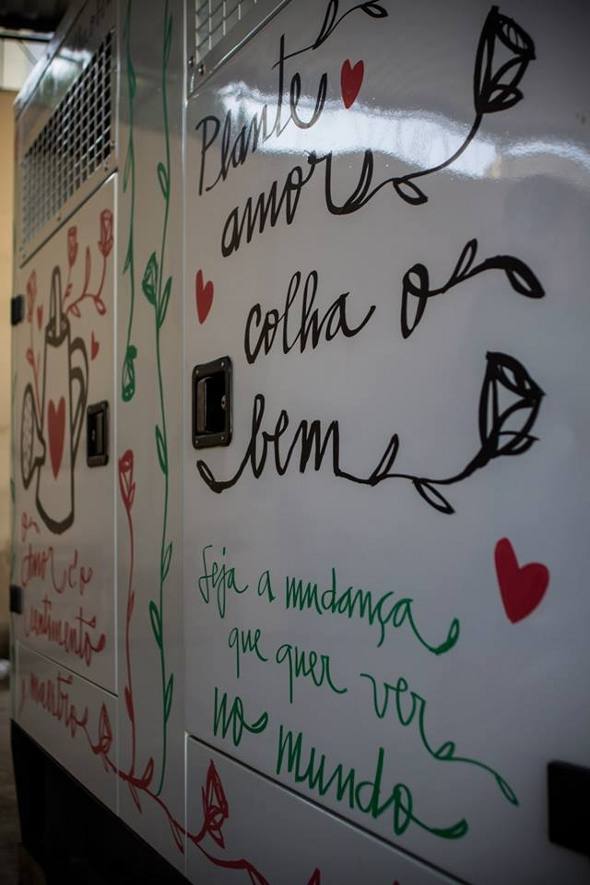 Plante
amor
colha o
bem
Seja a mudança
que quer ver
no mundo
o
amor é o
sentimento
maestro